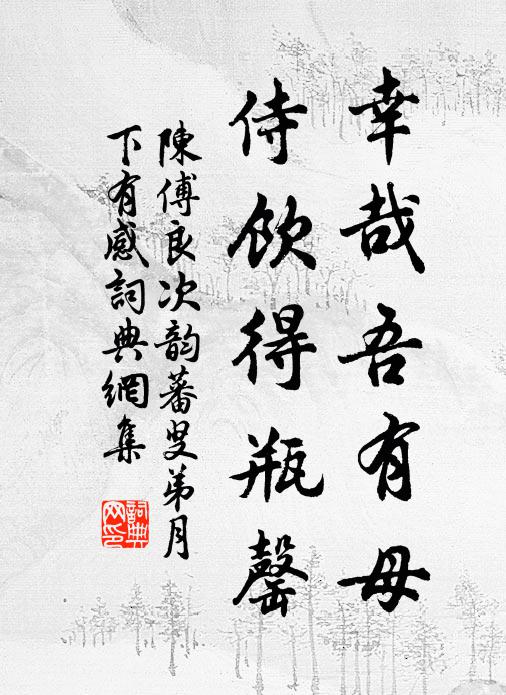 幸哉吾有母
侍飲得瓶罄
陳傅良次韵蕃叟弟月
下有感詞典網集
詞典
网印